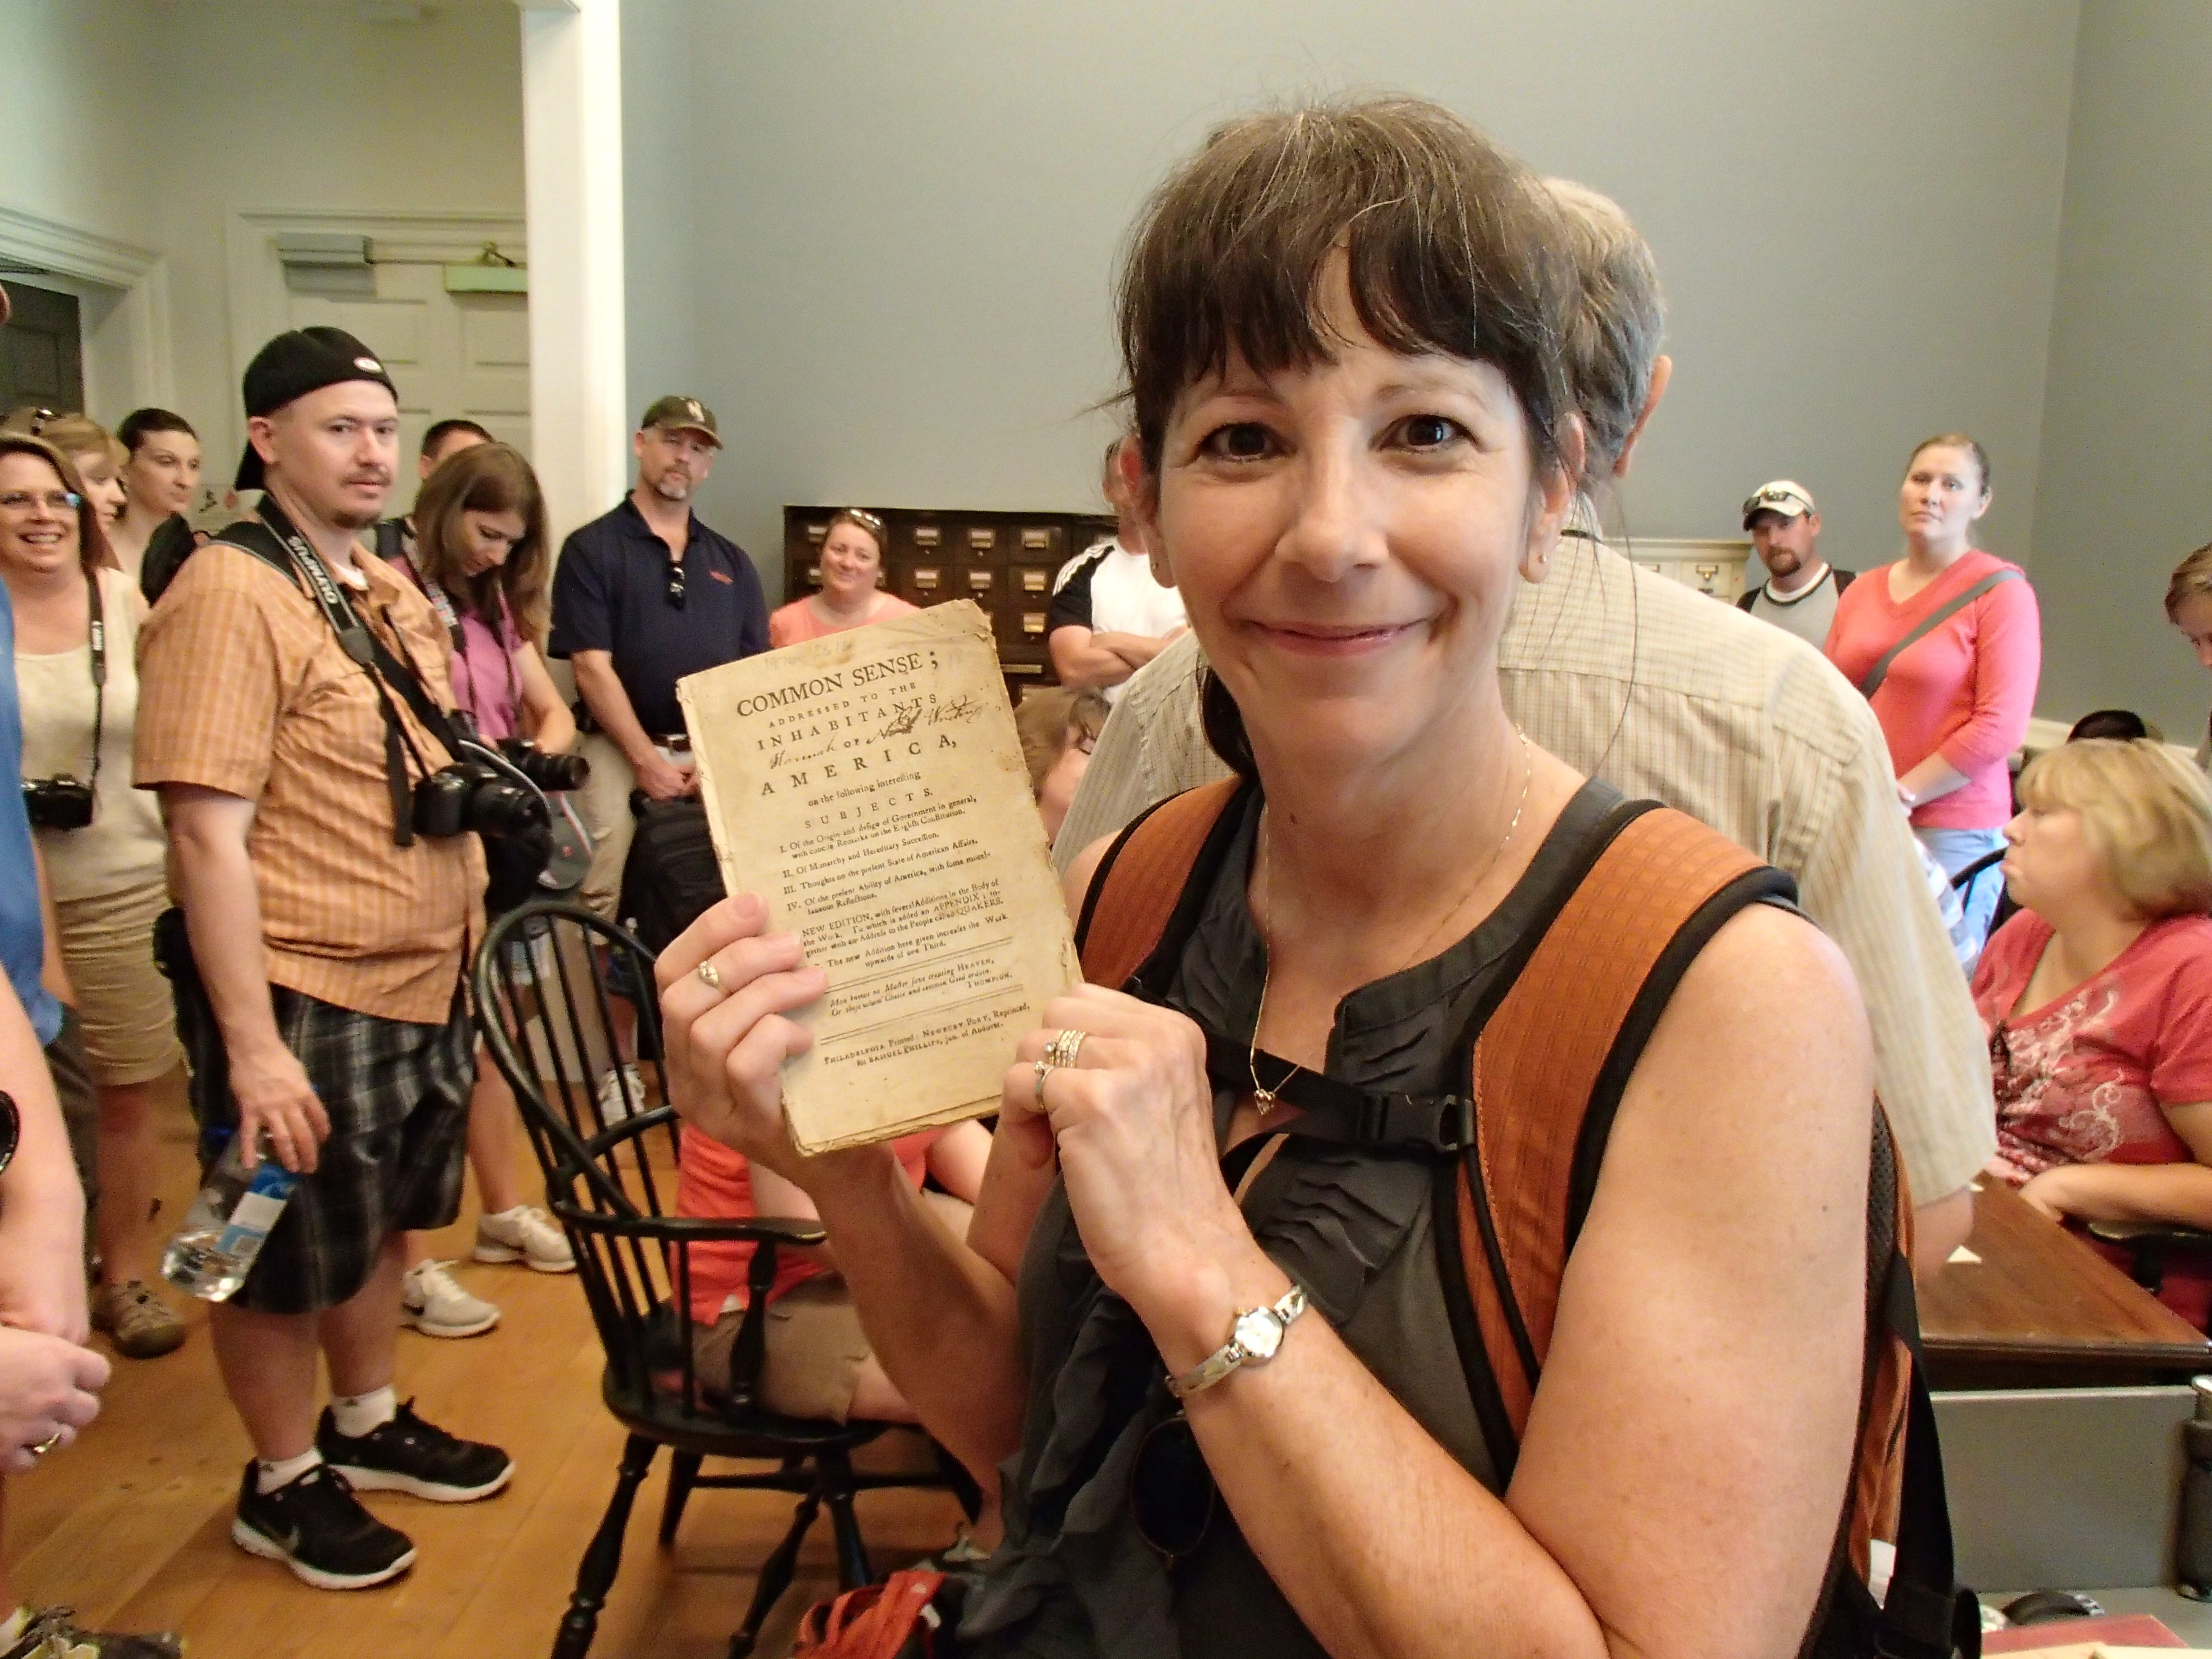 COMMON SENSE;
ADDRESSED TO THE
INHABITANTS
OF
AMERICA,
on the following interesting
SUBJECTS.
I. Of the Origin and design of Government in general,
with concise Remarks on the English Constitution.
II. Of Monarchy and Hereditary Succession.
III. Thoughts on the present State of American Affairs.
IV. Of the present Ability of America, with some miscel-
laneous Reflections.
NEW EDITION, with several Additions in the Body of
the Work. To which is added an APPENDIX; to-
gether with an Address to the People called QUAKERS.
The new Addition here given increases the Work
upwards of one Third.
Man knows no Master save creating HEAVEN,
Or those whom Choice and common Good ordain.
THOMPSON.
PHILADELPHIA Printed: NEWBURY-PORT, Reprinted,
SAMUEL PHILLIPS, jun. of Andover.
OLYMPUS